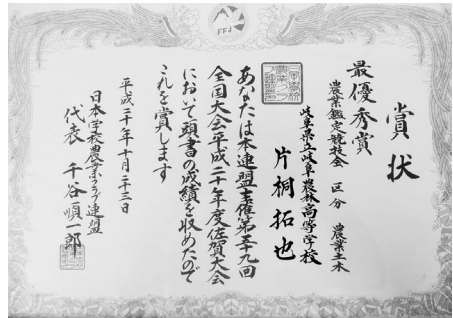 FFJ
賞状
最優秀賞
農業鑑定競技会 区分 農業土木
岐阜県立岐阜農林高等学校
片桐拓也
あなたは本連盟主催第五十九回
全国大会平成二十年度佐賀大会
において頭書の成績を収めたので
これを賞します
平成二十年十月二十三日
日本学校農業クラブ連盟
代表 千谷順一郎